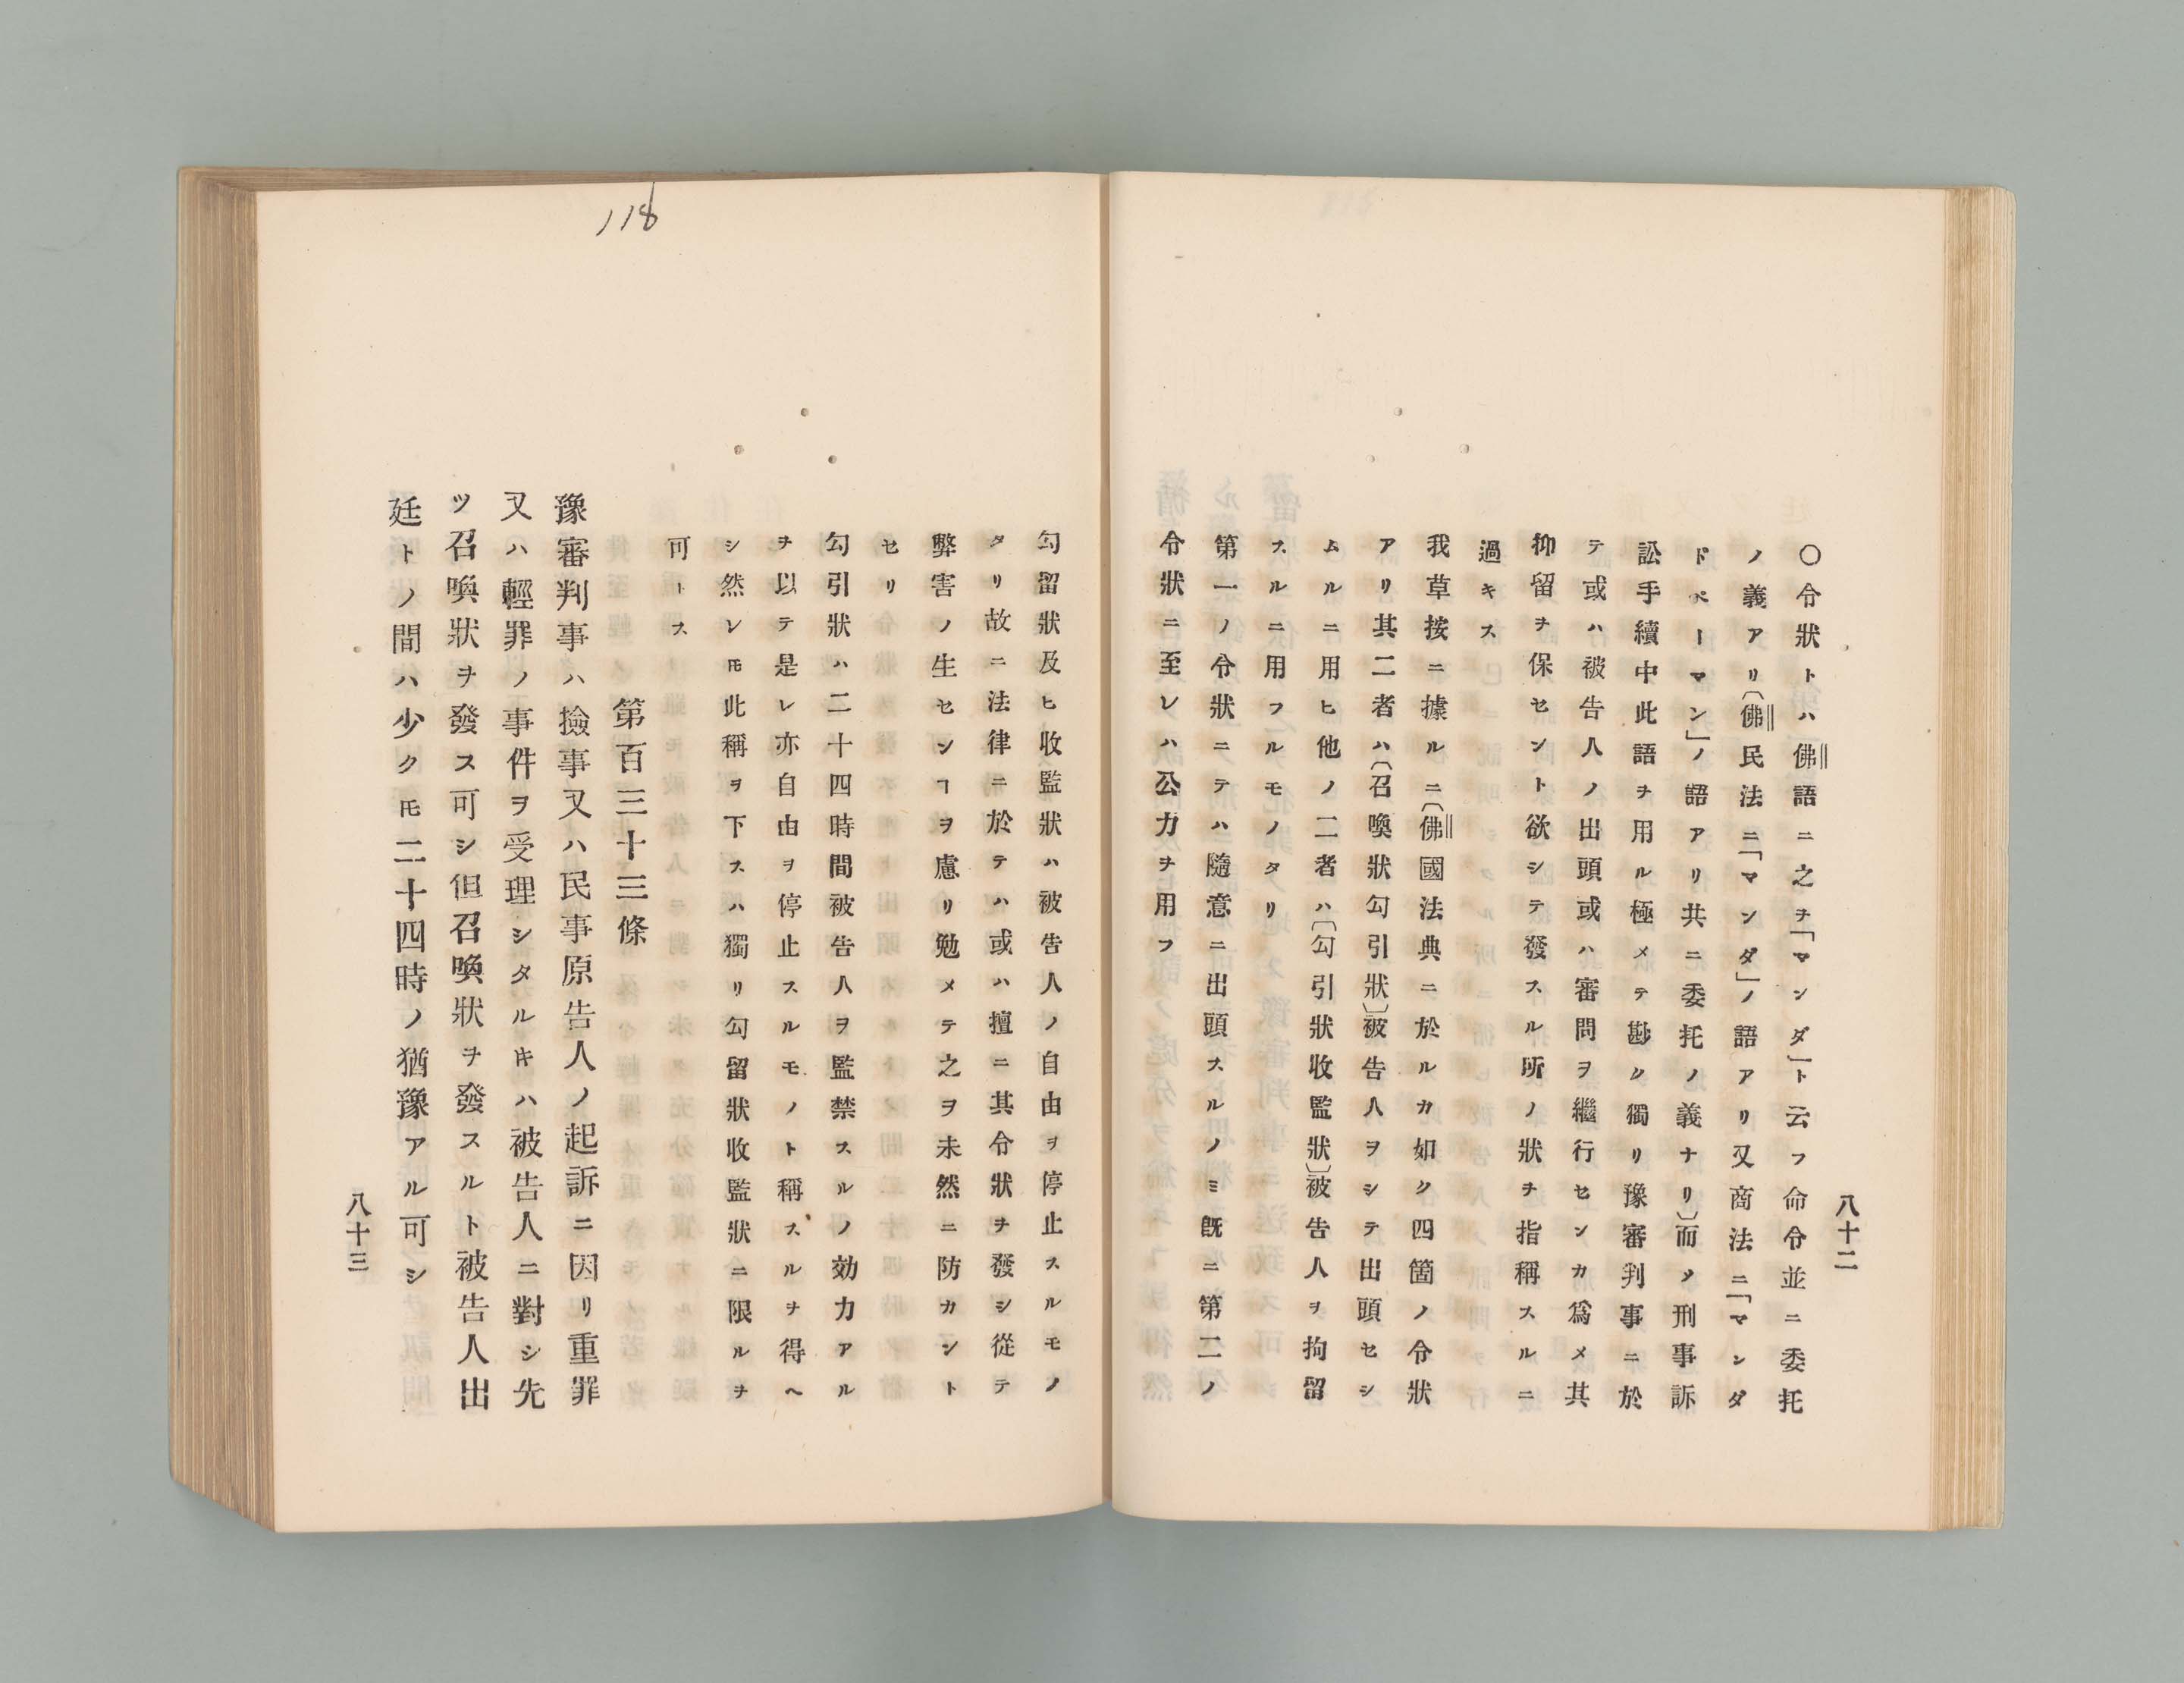 八十二
〇令狀トハ佛語ニ之ヲ「マンダ」ト云フ命令並ニ委托
ノ義アリ(佛民法ニ「マンダ」ノ語アリ又商法ニ「マンダ
ドペーマン」ノ語アリ共ニ委托ノ義ナリ)而〆刑事訴
訟手續中此語ヲ用ル極メテ尠ク獨リ豫審判事ニ於
テ或ハ被告人ノ出頭或ハ審問ヲ繼行センカ爲メ其
抑留ヲ保セント欲シテ發スル所ノ狀ヲ指稱スルニ
過キス
我草按ニ據ルニ(佛國法典ニ於ルカ如ク四箇ノ令狀
アリ其二者ハ(召喚狀勾引狀)被告人ヲシテ出頭セシ
ムルニ用ヒ他ノ二者ハ(勾引狀收監狀)被告人ヲ拘留
スルニ用フルモノタリ
第一ノ令狀ニテハ隨意ニ出頭スルノミ既ニ第二ノ
令狀ニ至レハ公力ヲ用フ
118
勾留狀及ヒ收監狀ハ被告人ノ自由ヲ停止スルモノ
タリ故ニ法律ニ於テハ或ハ擅ニ其令狀ヲ發シ從テ
弊害ノ生センヿヲ慮リ勉メテ之ヲ未然ニ防カント
セリ
勾引狀ハ二十四時間被告人ヲ監禁スルノ効力アル
ヲ以テ是レ亦自由ヲ停止スルモノト稱スルヲ得ヘ
シ然レ𪜈此稱ヲ下スハ獨リ勾留狀收監狀ニ限ルヲ
可トス
第百三十三條
豫審判事ハ撿事又ハ民事原告人ノ起訴ニ因リ重罪
又ハ輕罪ノ事件ヲ受理シタルキハ被告人ニ對シ先
ツ召喚狀ヲ發ス可シ但召喚狀ヲ發スルト被告人出
廷トノ間ハ少ク𪜈二十四時ノ猶豫アル可シ
八十三